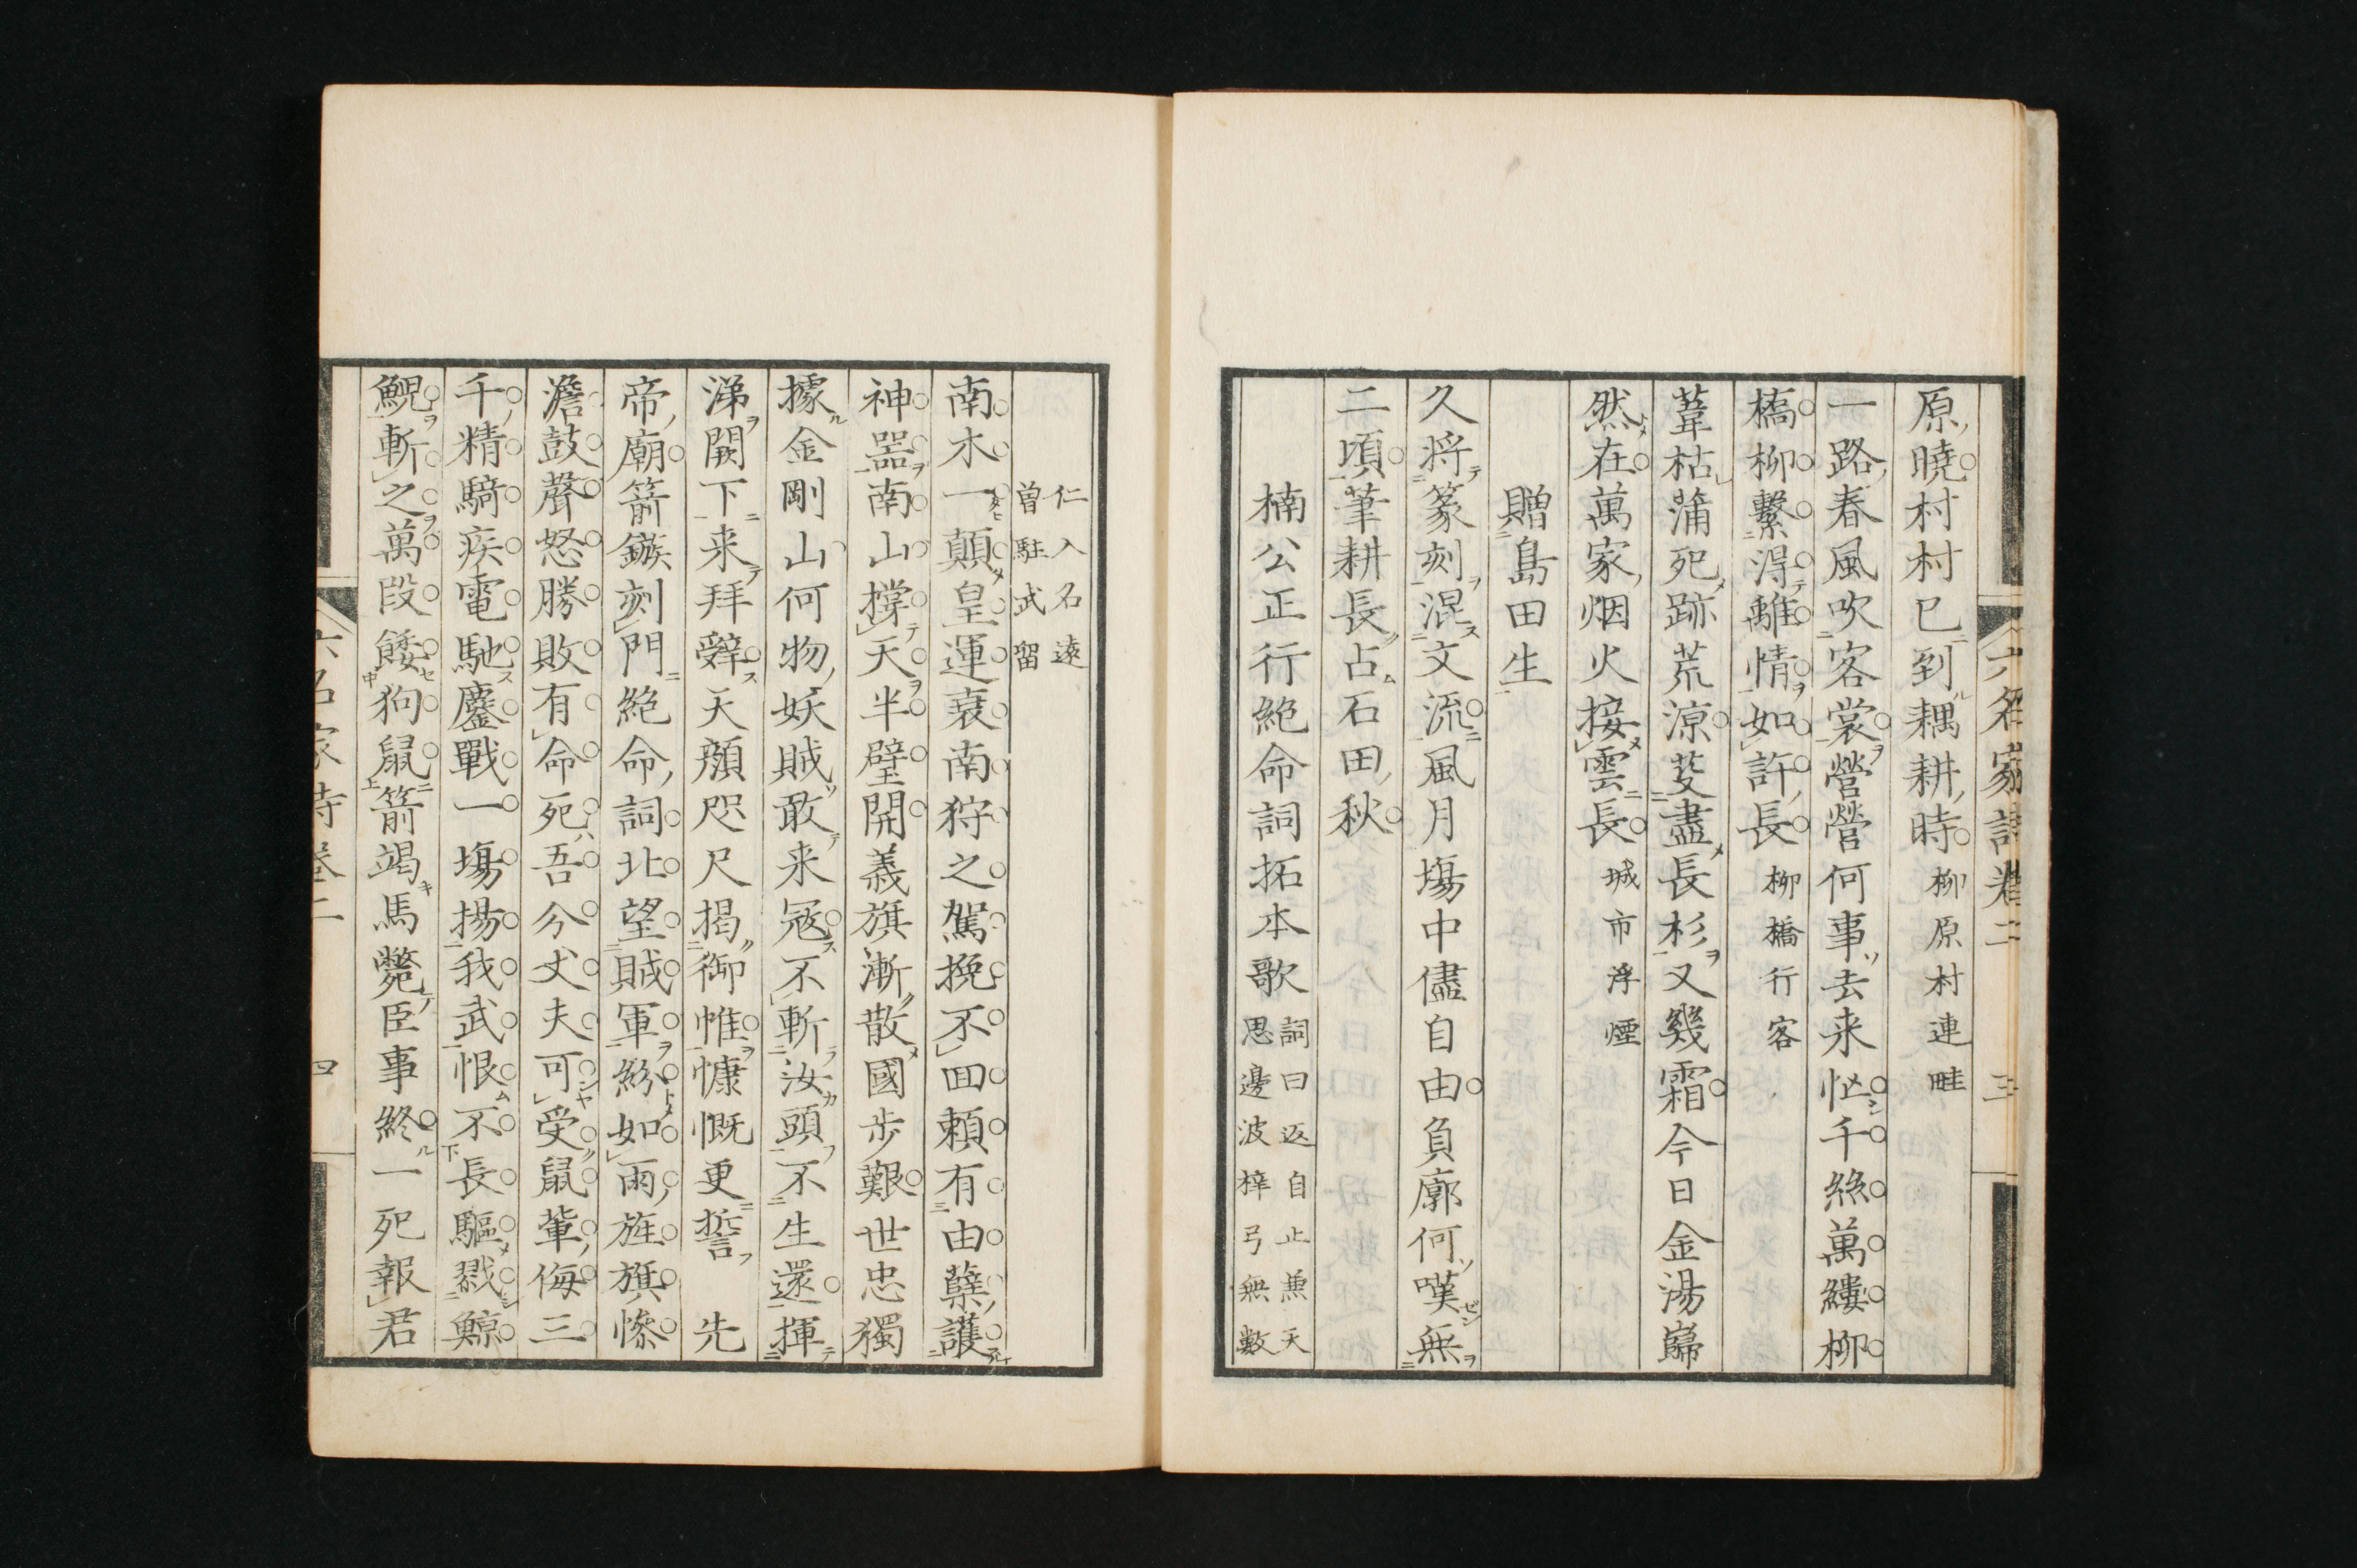 六名家詩卷二 三
原曉村村已到耦耕時 柳原村連畦
一路春風吹客裳營營何事去来忙千絲萬縷柳
橋柳繫得離情如許長 柳橋行客
葦枯蒲死跡荒涼芟盡長杉又幾霜今日金湯巋
然在萬家烟火接雲長 城市浮煙
贈島田生
久將篆刻混文流風月塲中儘自由負廓何嘆無
二頃筆耕長占石田秋
楠公正行絶命詞拓本歌
詞曰返自止兼天
思邊波梓弓無數
仁入名遠
曽駐武留
南木一顛皇運衰南狩之駕挽不回頼有由蘗護
神器南山撑天半壁開義旗漸散國步艱世忠獨
據金剛山何物妖賊敢来冦不斬汝頭不生還揮
涕闕下来拜辭天顔咫尺揭御帷慷慨更誓 先
帝廟箭鏃刻門絶命詞北望賊軍紛如雨旌旗慘
澹鼓聲怒勝敗有命死吾分丈夫可受鼠輩侮三
千精騎疾電馳鏖戰一塲揚我武恨不長驅戮鯨
鯢斬之萬段餧狗鼠箭竭馬斃臣事終一死報君
六名家詩卷二 四